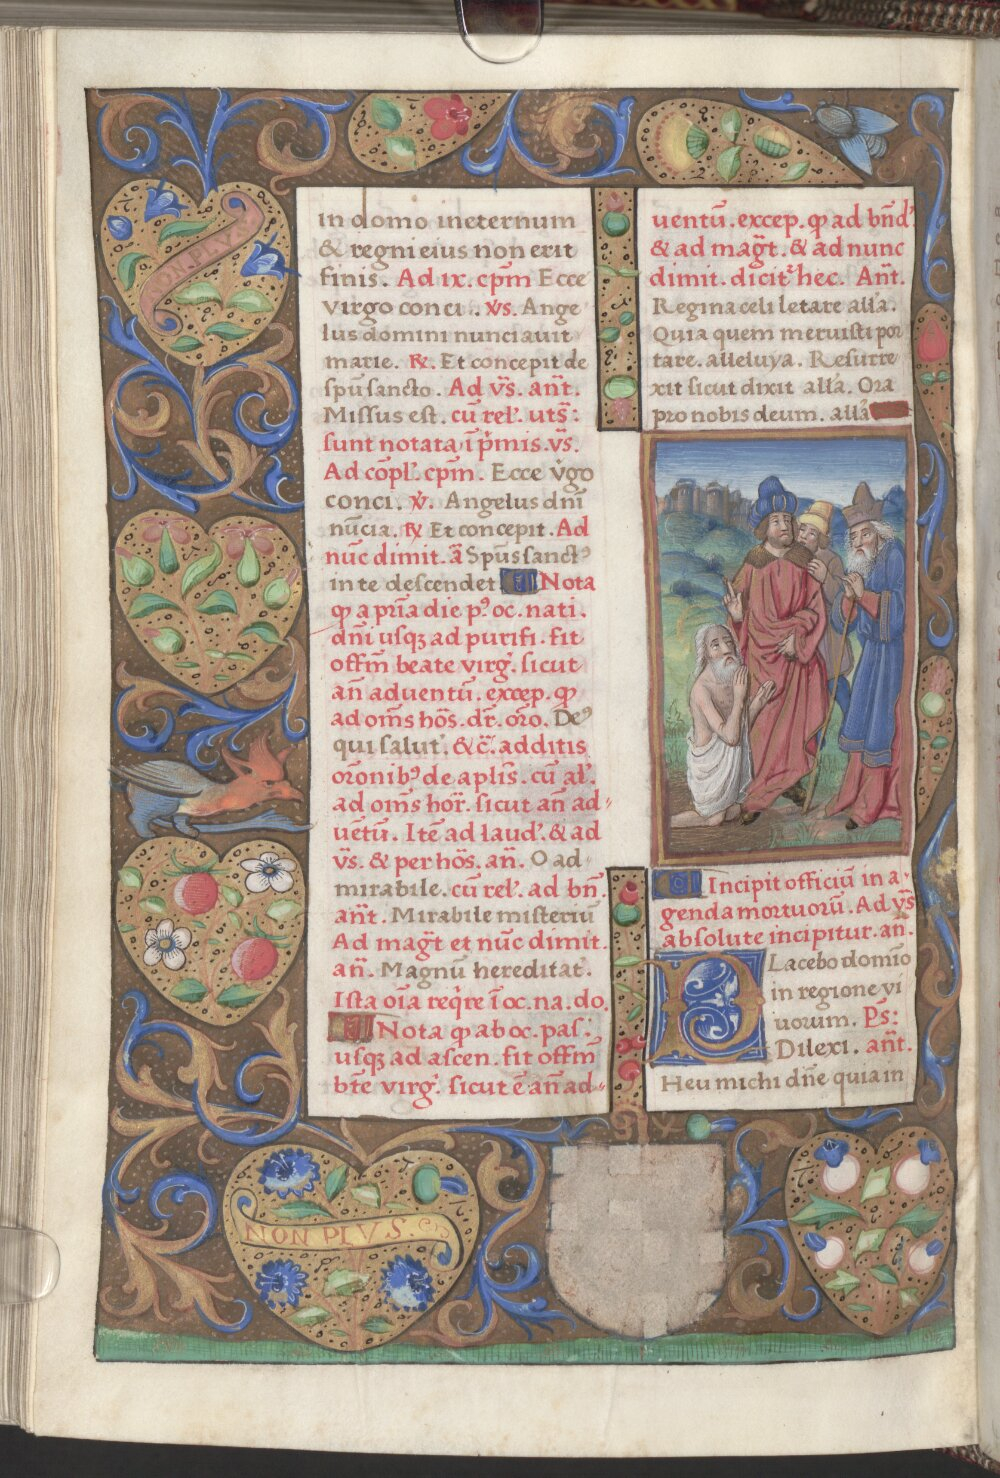 NON PLVS
in domo ineternum
& regni eius non erit
finis. Ad ix. cp̄m Ecce
virgo conci. v̄s. Ange
lus domini nunciavit
marie. ℟. Et concepit de
sp̄u sancto. Ad v̄s. an̄t.
Missus est. cū rel'. ut s̄:
sunt notata ī p̄mis. v̄s.
Ad cōpl'. cp̄m. Ecce v̄go
conci. v̄. Angelus dn̄i
nūcia. ℟ Et concepit. Ad
nūc dimit. ā Sp̄us sanct⁹
in te descendet Nota
ꝙ a p̄ia die p⁹ oc. nati.
dn̄i usqꝫ ad purifi. fit
offm̄ beate virg̛. sicut
an̄ adventū. excep. ꝙ
ad om̄s hōs. dr̄. orō. De⁹
qui salut'. & c̄. additis
orōnib⁹ de aplīs. cū al'.
ad om̄s hor̄. sicut an̄ ad
uētū. Itē ad laud'. & ad
v̄s. & per hōs. an̄. O ad
mirabile. cū rel'. ad bn̄.
an̄t. Mirabile misteriū
Ad mag̅t et nūc dimit.
an̄. Magnū hereditat'.
Ista oīa reqͥre ī oc. na. do.
Nota ꝙ ab oc. pas'.
usqꝫ ad ascen. fit offm̄
bt̄e virg̛. sicut ē an̄ ad
uentū. excep. ꝙ ad bn̄d'
& ad mag̅t. & ad nunc
dimit. dicit᷑ hec. An̄t.
Regina celi letare all'a.
Quia quem meruisti por
tare. alleluya. Resurre
xit sicut dixit all'a. Ora
pro nobis deum. all'a
Incipit officiū in a
genda mortuorū. Ad v̄s
absolute incipitur. an.
PLacebo domīo
in regione vi
uorum. Ps̄:
Dilexi. an̄t.
Heu michi dn̄e quia in
NON PLVS